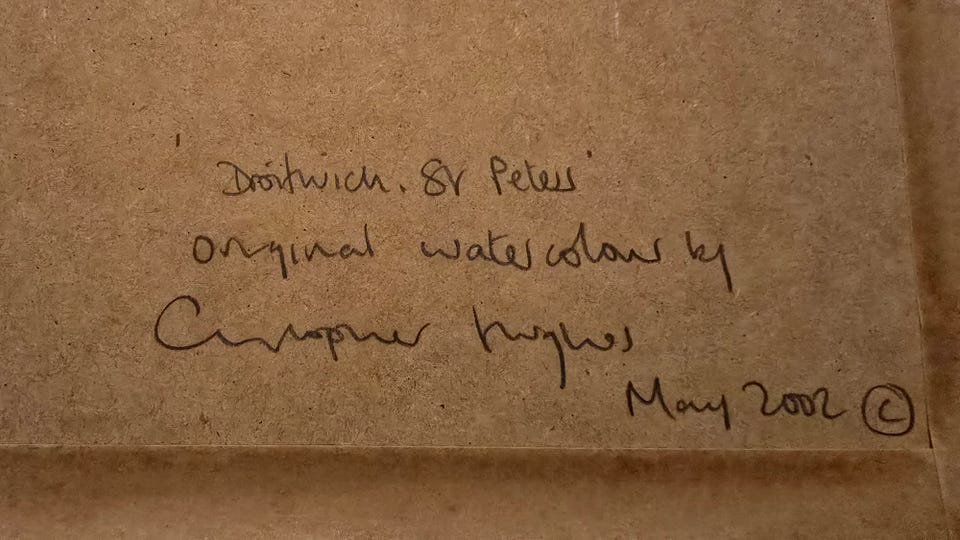 'Droitwich. St Peters'
Original watercolour by
Christopher Hughes
May 2002 ©